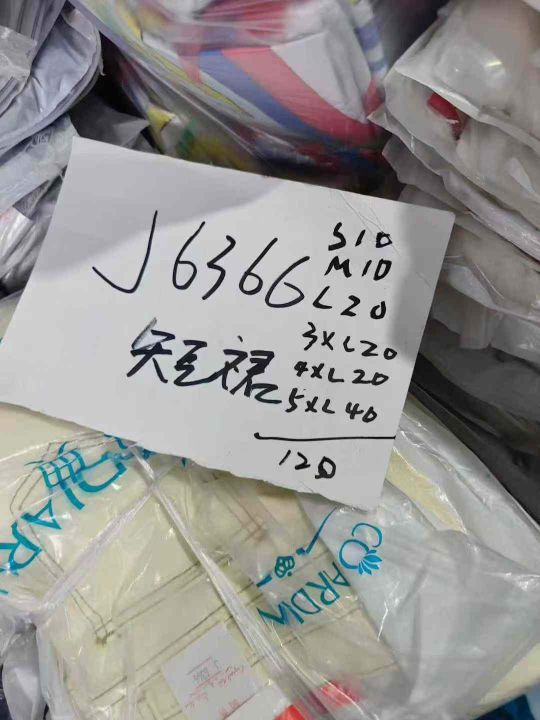 J6366
S10
M10
L20
3XL20
4XL20
5XL40
短裙
120
ARDIN